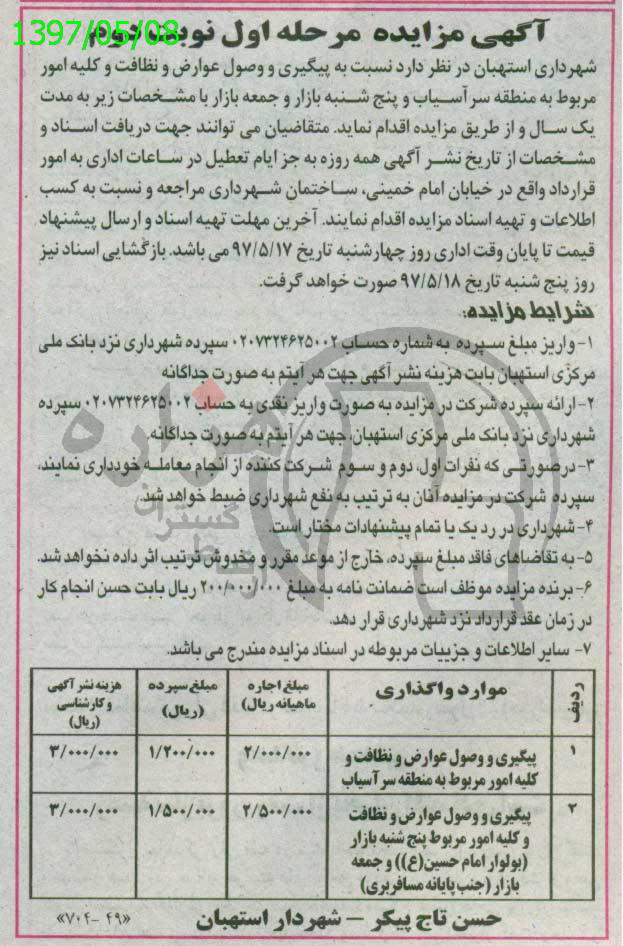 1397/05/08
آگهی مزایده مرحله اول نوبت دوم
شهرداری استهبان در نظر دارد نسبت به پیگیری و وصول عوارض و نظافت و کلیه امور
مربوط به منطقه سرآسیاب و پنج شنبه بازار و جمعه بازار با مشخصات زیر به مدت
یک سال و از طریق مزایده اقدام نماید. متقاضیان می توانند جهت دریافت اسناد و
مشخصات از تاریخ نشر آگهی همه روزه به جز ایام تعطیل در ساعات اداری به امور
قرارداد واقع در خیابان امام خمینی، ساختمان شهرداری مراجعه و نسبت به کسب
اطلاعات و تهیه اسناد مزایده اقدام نمایند. آخرین مهلت تهیه اسناد و ارسال پیشنهاد
قیمت تا پایان وقت اداری روز چهارشنبه تاریخ ۹۷/۵/۱۷ می باشد. بازگشایی اسناد نیز
روز پنج شنبه تاریخ ۹۷/۵/۱۸ صورت خواهد گرفت.
شرایط مزایده:
۱- واریز مبلغ سپرده به شماره حساب ۰۲۰۷۳۲۴۶۲۵۰۰۲ سپرده شهرداری نزد بانک ملی
مرکزی استهبان بابت هزینه نشر آگهی جهت هر آیتم به صورت جداگانه
۲- ارائه سپرده شرکت در مزایده به صورت واریز نقدی به حساب ۰۲۰۷۳۲۴۶۲۵۰۰۲ سپرده
شهرداری نزد بانک ملی مرکزی استهبان، جهت هر آیتم به صورت جداگانه.
۳- درصورتی که نفرات اول، دوم و سوم شرکت کننده از انجام معامله خودداری نمایند،
سپرده شرکت در مزایده آنان به ترتیب به نفع شهرداری ضبط خواهد شد.
۴- شهرداری در رد یک یا تمام پیشنهادات مختار است.
۵- به تقاضاهای فاقد مبلغ سپرده، خارج از موعد مقرر و مخدوش ترتیب اثر داده نخواهد شد.
۶- برنده مزایده موظف است ضمانت نامه به مبلغ ۲۰۰/۰۰۰/۰۰۰ ریال بابت حسن انجام کار
در زمان عقد قرارداد نزد شهرداری قرار دهد.
۷- سایر اطلاعات و جزییات مربوطه در اسناد مزایده مندرج می باشد.
ردیف موارد واگذاری مبلغ اجاره ماهیانه ریال) مبلغ سپرده (ریال) هزینه نشر آگهی و کارشناسی (ریال)
۱ پیگیری و وصول عوارض و نظافت و ۲/۰۰۰/۰۰۰ ۱/۲۰۰/۰۰۰ ۳/۰۰۰/۰۰۰
کلیه امور مربوط به منطقه سرآسیاب
۲ پیگیری و وصول عوارض و نظافت ۲/۵۰۰/۰۰۰ ۱/۵۰۰/۰۰۰ ۳/۰۰۰/۰۰۰
و کلیه امور مربوط پنج شنبه بازار
(بولوار امام حسین(ع)) و جمعه
بازار (جنب پایانه مسافربری)
حسن تاج پیکر – شهردار استهبان «۷۰۲-۴۹»
هزاره
گستران